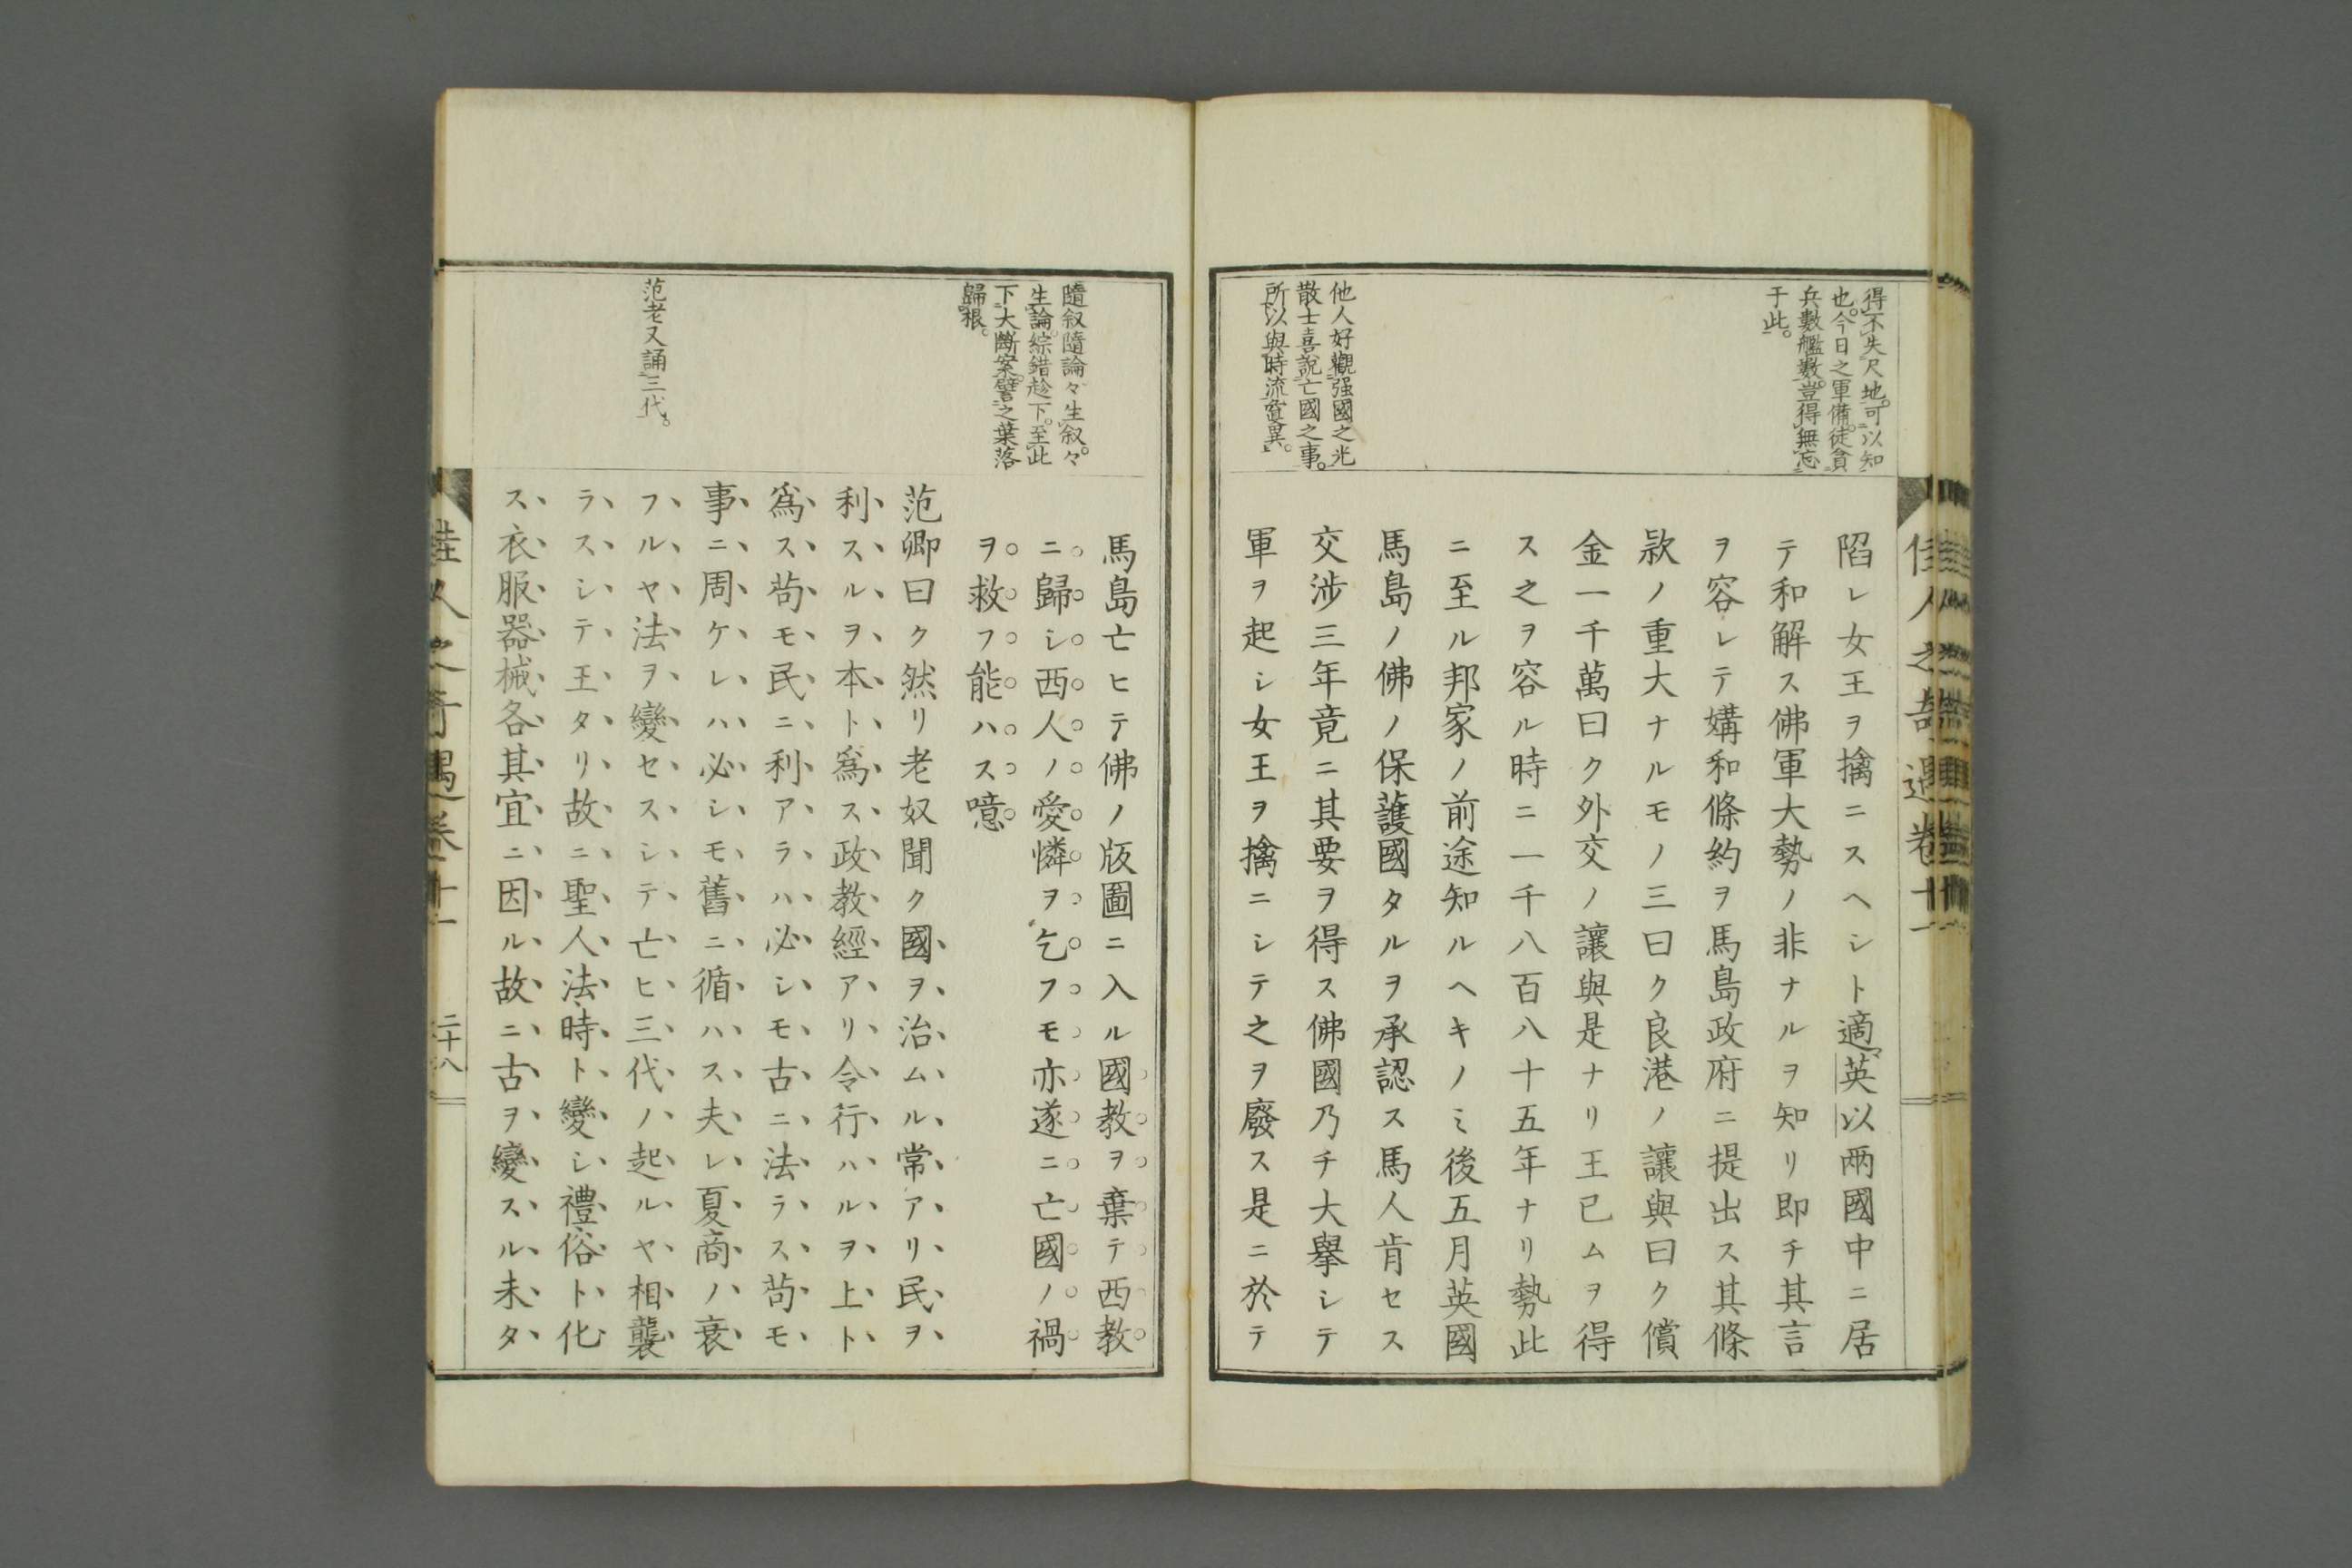 得不失尺地。可以知
也。今日之軍備。徒貪
兵數艦數。豈得無忘
于此。
他人好觀强國之光
散士喜說亡國之事。
所以與時流夐異。
佳人之奇遇卷十一
陷レ女王ヲ擒ニスヘシト適英以兩國中ニ居
テ和解ス佛軍大勢ノ非ナルヲ知リ即チ其言
ヲ容レテ媾和條約ヲ馬島政府ニ提出ス其條
欵ノ重大ナルモノ三曰ク良港ノ讓與曰ク償
金一千萬曰ク外交ノ讓與是ナリ王已ムヲ得
ス之ヲ容ル時ニ一千八百八十五年ナリ勢此
ニ至ル邦家ノ前途知ルヘキノミ後五月英國
馬島ノ佛ノ保護國タルヲ承認ス馬人肯セス
交涉三年竟ニ其要ヲ得ス佛國乃チ大擧シテ
軍ヲ起シ女王ヲ擒ニシテ之ヲ廢ス是ニ於テ
隨叙隨論々生叙。々
生論。綜錯趁下。至此
下大斷案。譬之葉落
歸根。
范老又誦三代。
馬島亡ヒテ佛ノ版圖ニ入ル國教ヲ棄テ西教
ニ歸シ西人ノ愛憐ヲ乞フモ亦遂ニ亡國ノ禍
ヲ救フ能ハス噫
范卿曰ク然リ老奴聞ク國ヲ治ムル常アリ民ヲ
利スルヲ本ト爲ス政教經アリ令行ハルヲ上ト
爲ス苟モ民ニ利アラハ必シモ古ニ法ラス苟モ
事ニ周ケレハ必シモ舊ニ循ハス夫レ夏商ノ衰
フルヤ法ヲ變セスシテ亡ヒ三代ノ起ルヤ相襲
ラスシテ王タリ故ニ聖人法時ト變シ禮俗ト化
ス衣服器械各其宜ニ因ル故ニ古ヲ變スル未タ
佳人之奇遇卷十一
二十八